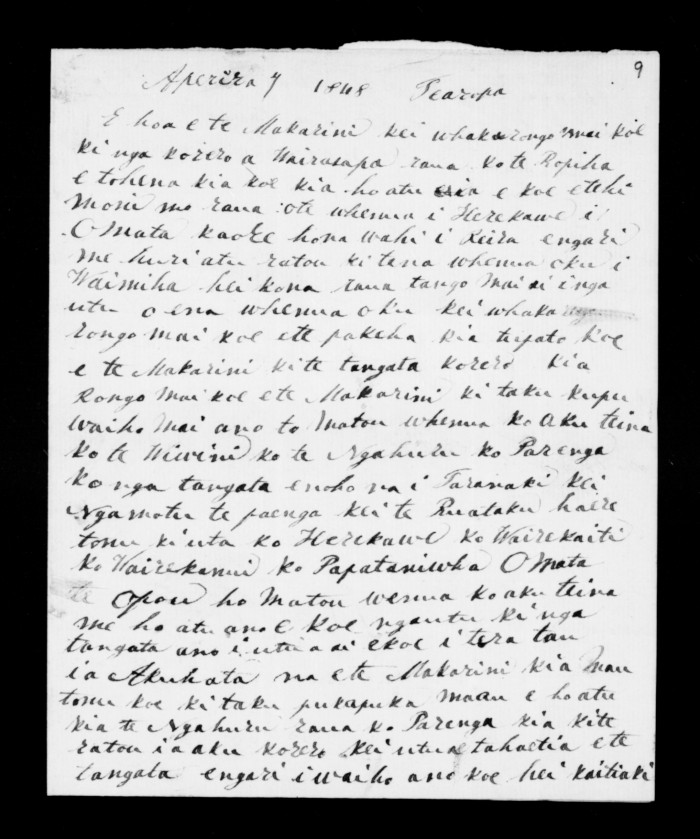 9
Aperira 7 1848 Tearopa
E hoa e te Makarini kei whakarongo mai koe
ki nga korero a Wairarapa raua ko te Ropiha
e tohena kia koe kia hoatu e koe etehi
moni mo raua ote whenua i Herekawe i
Omata kaore hona wahi i Reira engari
me huri atu ratou ki tena whenua oku i
Waimiha hei kona raua tango mai ai i nga
utu o ena whenua oku kei whaka
rongo mai koe ete pakeha kia tupato koe
e te Makarini kite tangata korero kia
Rongo mai koe ete Makarini ki taku kupu
Waiho mai ano to matou whenua ko aku teina
ko te Wiwini ko te Ngahuru ko Parenga
ko nga tangata enoho na i Taranaki kei
Ngamotu te paenga kei te Ruataku haere
tonu ki uta ko Herekawe ko Wairekaiti
ko Wairekanui ko Papataniwha Omata
te Opou ho matou wenua ko aku teina
me ho atu ano e koe ngautu ki nga
tangata ano i utua ai ekoe i tera tau
i a Akuhata na ete Makarini kia mau
tonu koe ki taku pukapuka maau e hoatu
kia te Ngahuru raua ko Parenga kia kite
ratou i a aku korero kei utua tahaetia ete
tangata engari i waiho ano koe hei kaitiaki